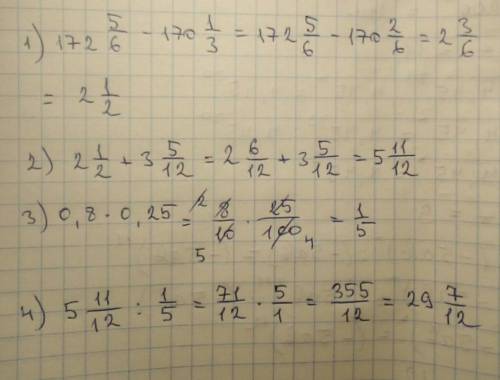 1) 172 5/6 - 170 1/3 = 172 5/6 - 170 2/6 = 2 3/6
= 2 1/2
2) 2 1/2 + 3 5/12 = 2 6/12 + 3 5/12 = 5 11/12
3) 0,8 · 0,25 = 2 8/10 5 · 25/100 4 = 1/5
4) 5 11/12 : 1/5 = 71/12 · 5/1 = 355/12 = 29 7/12